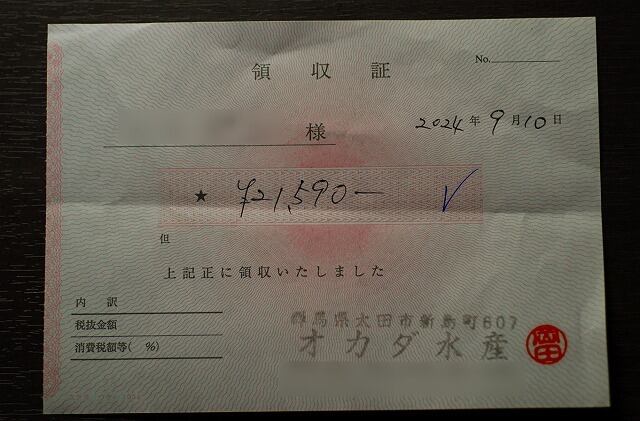 領収証
No.
様
2024年9月10日
★ ¥21,590－
但
上記正に領収いたしました
内訳
税抜金額
消費税額等( %)
群馬県太田市新島町607
オカダ水産